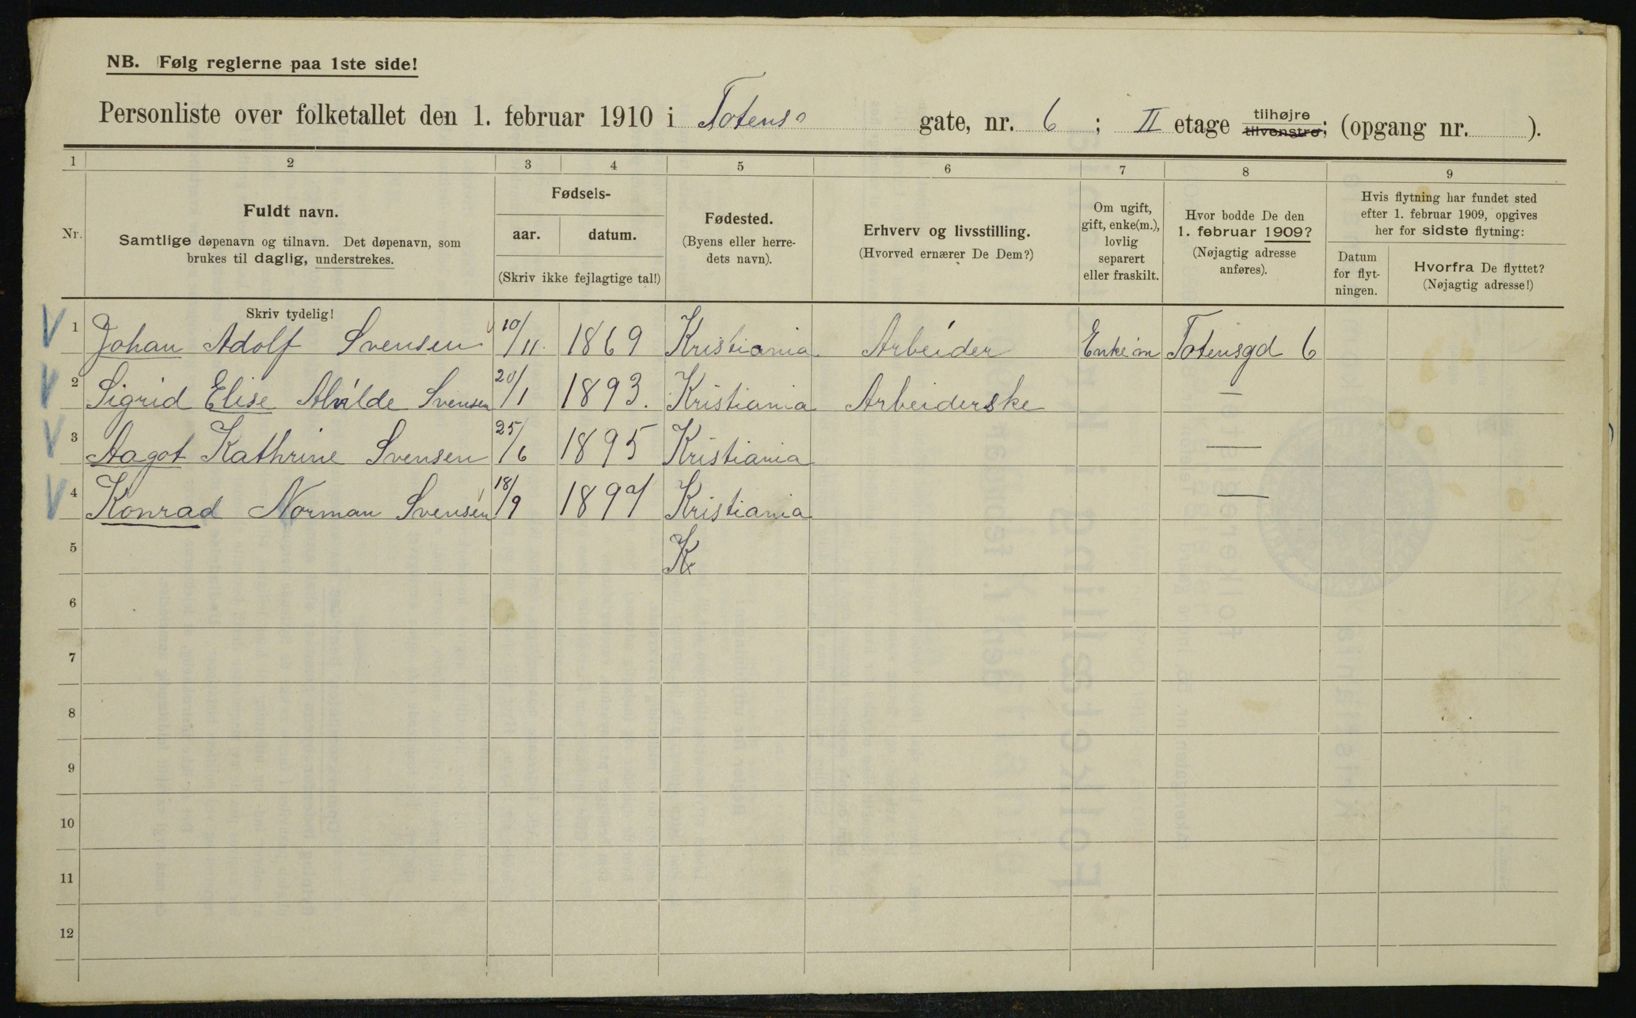 NB. Følg reglerne paa 1ste side!
Personliste over folketallet den 1. februar 1910 i Totens gate, nr. 6 ; II etage tilhøjre tilvenstre; (opgang nr. ).
1 2 3 4 5 6 7 8 9
Nr. Fuldt navn. Samtlige døpenavn og tilnavn. Det døpenavn, som brukes til daglig, understrekes.
Fødsels-
aar. datum.
(Skriv ikke fejlagtige tal!)
Fødested.
(Byens eller herre-
dets navn).
Erhverv og livsstilling.
(Hvorved ernærer De Dem?)
Om ugift,
gift, enke(m.),
lovlig
separert
eller fraskilt.
Hvor bodde De den
1. februar 1909?
(Nøjagtig adresse
anføres).
Hvis flytning har fundet sted
efter 1. februar 1909, opgives
her for sidste flytning:
Datum
for flyt-
ningen.
Hvorfra De flyttet?
(Nøjagtig adresse!)
Skriv tydelig!
1 Johan Adolf Svensen 10/11. 1869 Kristiania Arbeider Enkem Totensgd 6
2 Sigrid Elise Alvilde Svensen 20/1 1893. Kristiania Arbeiderske —
3 Aagot Kathrine Svensen 25/6 1895 Kristiania —
4 Konrad Norman Svensen 18/9 1897 Kristiania —
5 K
6
7
8
9
10
11
12